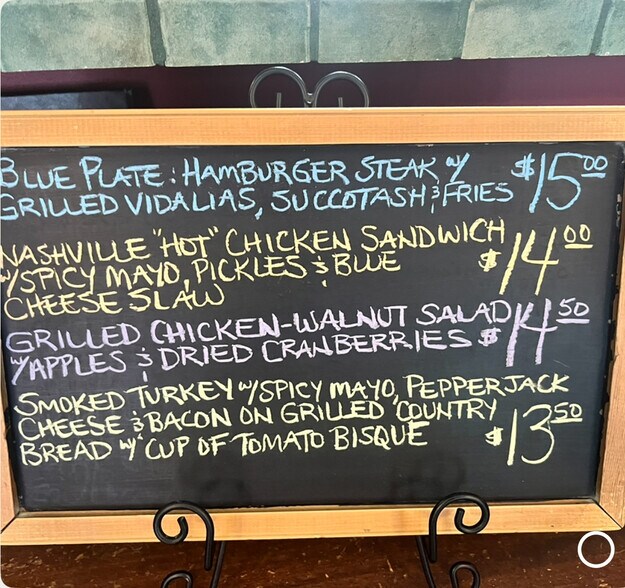 BLUE PLATE: HAMBURGER STEAK W/ $15.00
GRILLED VIDALIAS, SUCCOTASH & FRIES
NASHVILLE "HOT" CHICKEN SANDWICH $14.00
W/SPICY MAYO, PICKLES & BLUE
CHEESE SLAW
GRILLED CHICKEN-WALNUT SALAD $14.50
W/APPLES & DRIED CRANBERRIES
SMOKED TURKEY W/SPICY MAYO, PEPPERJACK
CHEESE & BACON ON GRILLED COUNTRY $13.50
BREAD W/ CUP OF TOMATO BISQUE